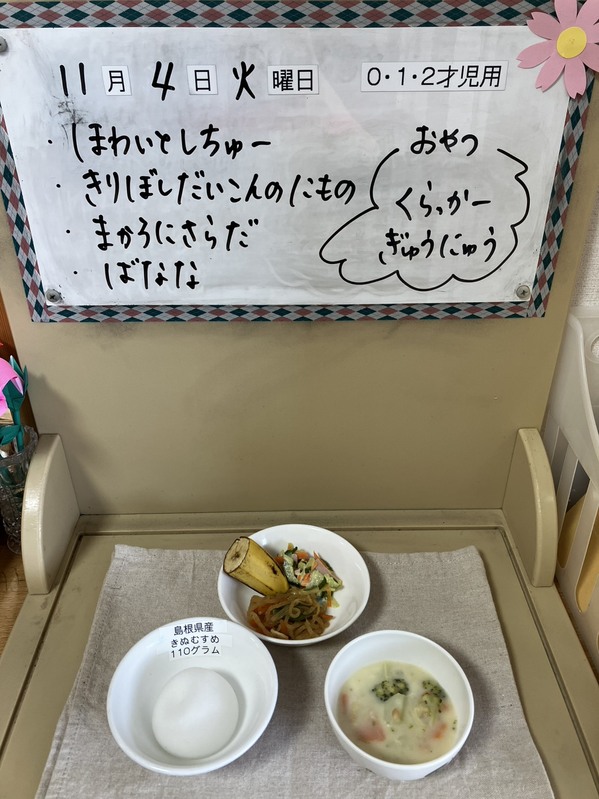 11月4日火曜日 0・1・2才児用
・しほわいとしちゅー
・きりぼしだいこんのにもの
・まかろにさらだ
・ばなな
おやつ
くらっかー
ぎゅうにゅう
島根県産
きぬむすめ
110グラム